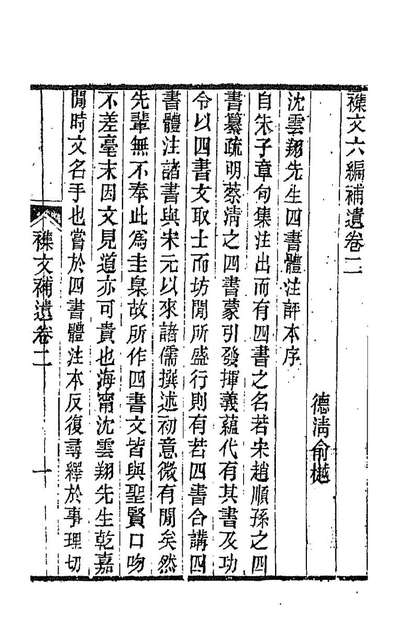 襍文六編補遺卷二
德清俞樾
沈雲翔先生四書體注評本序
自朱子章句集注出而有四書之名若宋趙順孫之四
書纂疏明蔡清之四書蒙引發揮義蘊代有其書及功
令以四書文取士而坊閒所盛行則有若四書合講四
書體注諸書與宋元以來諸儒撰述初意微有閒矣然
先輩無不奉此為圭臬故所作四書文皆與聖賢口吻
不差毫末因文見道亦可貴也海甯沈雲翔先生乾嘉
閒時文名手也嘗於四書體注本反復尋繹於事理切
襍文補遺卷二
一